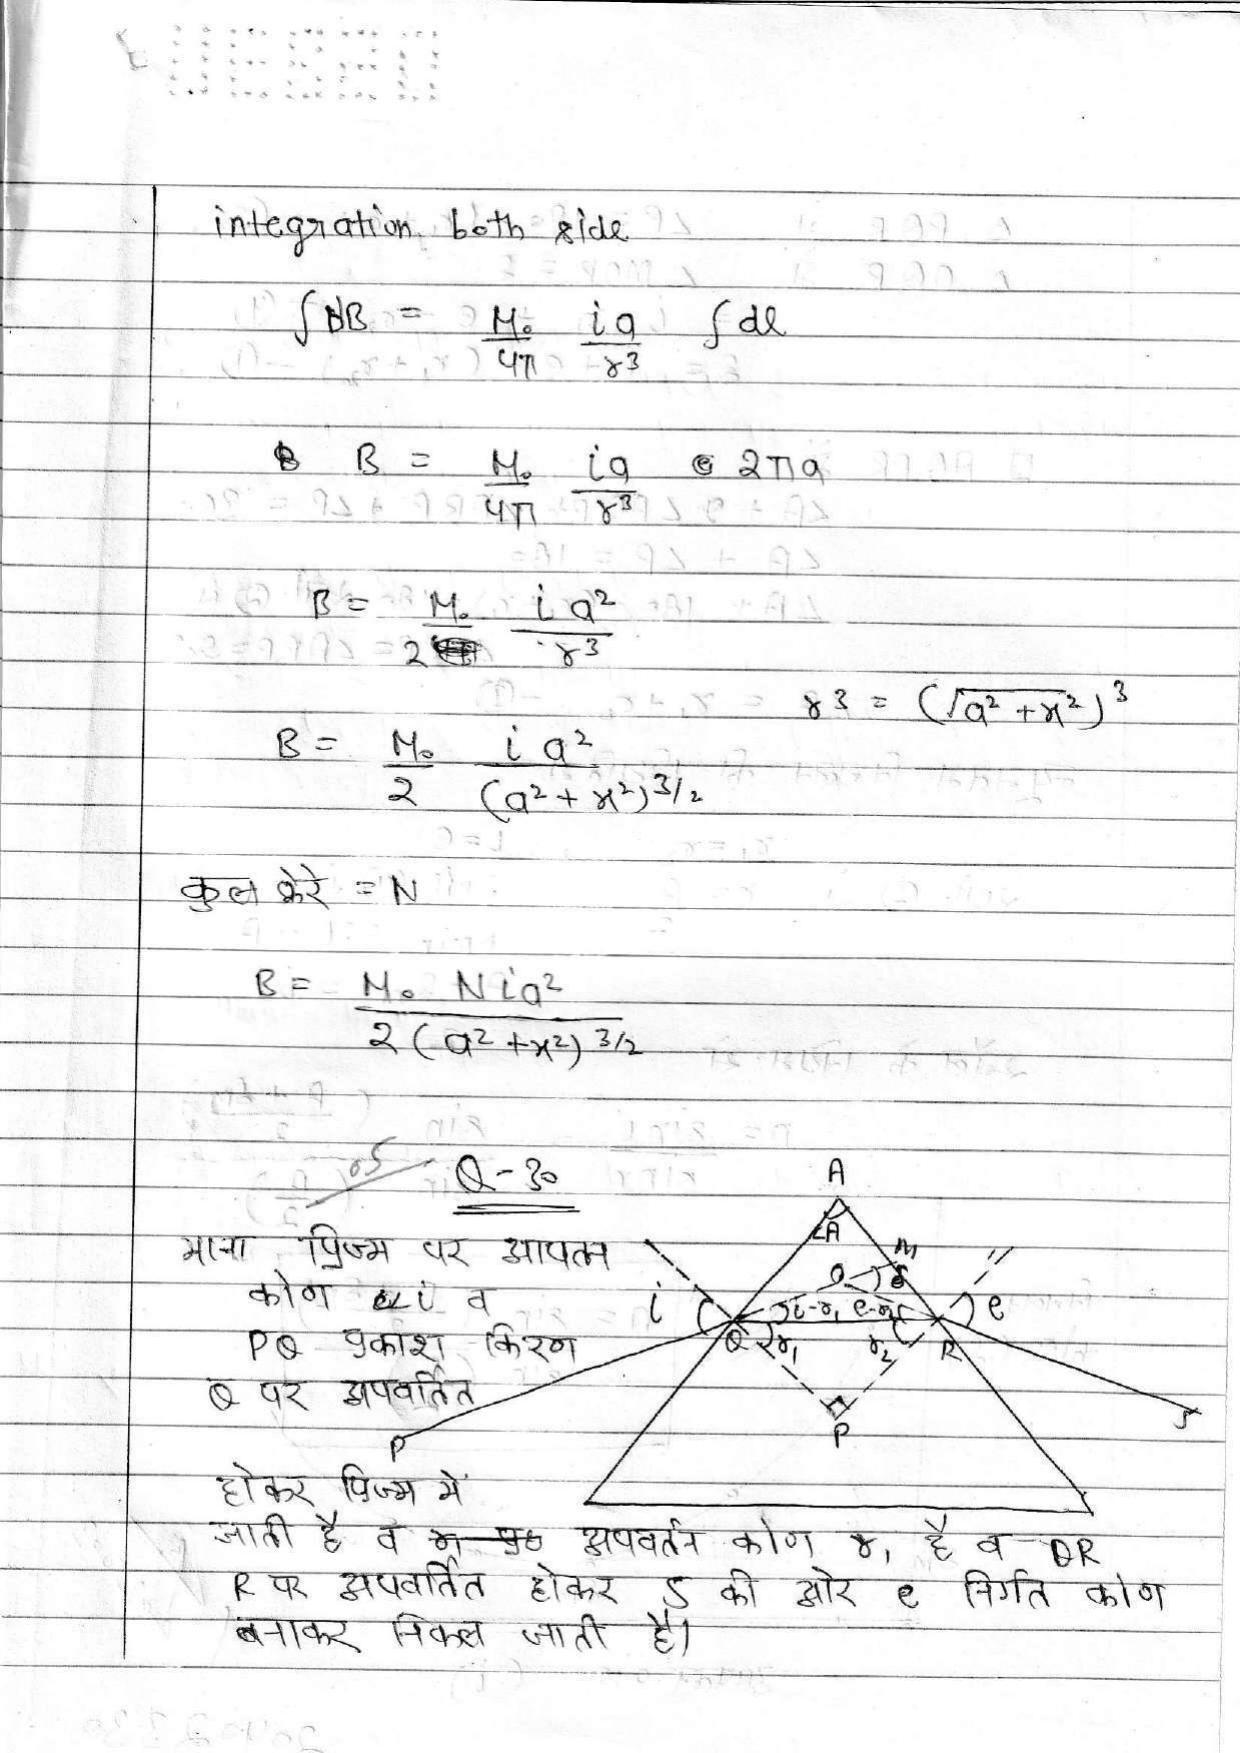 integration both side
∫dB = M₀/4π ia/r³ ∫dl
B = M₀/4π ia/r³ 2πa
B = M₀/2 i a²/r³
r3 = (√a² + x²)³
B = M₀/2 i a²/(a² + x²)3/2
कुल फेरे = N
B = M₀ N i a²/2 (a² + x²) 3/2
05
Q - 30
माना प्रिज्म पर आपतन
कोण ∠i व
PQ प्रकाश किरण
Q पर अपवर्तित
होकर प्रिज्म में
जाती है व अपवर्तन कोण r₁ है व QR
R पर अपवर्तित होकर S की ओर e निर्गत कोण
बनाकर निकल जाती है।
A
∠A
M
O
δ
i
i-r₁
e-r₂
e
Q
r₁
r₂
R
P
P
S